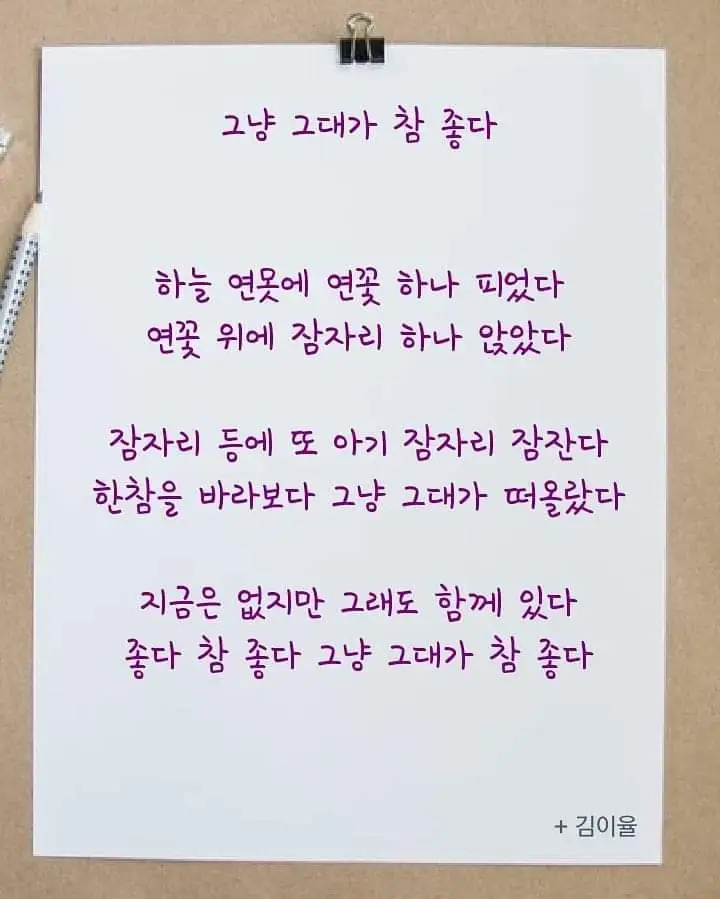 그냥 그대가 참 좋다
하늘 연못에 연꽃 하나 피었다
연꽃 위에 잠자리 하나 앉았다
잠자리 등에 또 아기 잠자리 잠잔다
한참을 바라보다 그냥 그대가 떠올랐다
지금은 없지만 그래도 함께 있다
좋다 참 좋다 그냥 그대가 참 좋다
+ 김이율